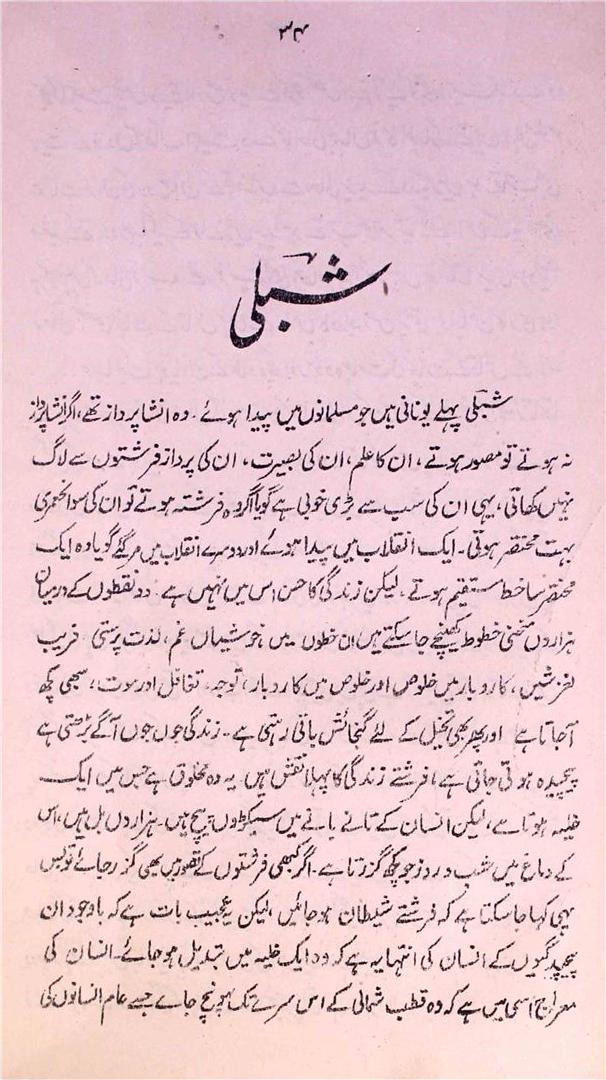 ۳۴
شبلی
شبلی پہلے یونانی ہیں جو مسلمانوں میں پیدا ہوئے ۔ وہ انشا پرداز تھے ، اگر انشا پرداز
نہ ہوتے تو مصور ہوتے ، ان کا علم ، ان کی بصیرت ، ان کی پرداز فرشتوں سے لاگ
نہیں کھاتی ، یہی ان کی سب سے بڑی خوبی ہے گویا اگر وہ فرشتہ ہوتے تو ان کی سوانحعمری
بہت مختصر ہوتی ۔ ایک انقلاب میں پیدا ہوئے اور دوسرے انقلاب میں مر گئے گویا وہ ایک
مختصر سا خط مستقیم ہوتے ، لیکن زندگی کا حسن اس میں نہیں ہے ۔ دو نقطوں کے درمیان
ہزاروں منحنی خطوط کھینچے جا سکتے ہیں ان خطوں میں خوشیاں غم ، لذت پرستی فریب
لغزشیں ، کاروبار میں خلوص اور خلوص میں کاروبار ، توجہ ، تغافل اور موت ، سبھی کچھ
آ جاتا ہے اور پھر بھی تخیل کے لئے گنجائش باقی رہتی ہے ۔ زندگی جوں جوں آگے بڑھتی ہے
پیچیدہ ہوتی جاتی ہے ، فرشتے زندگی کا پہلا نقش ہیں ۔ یہ وہ مخلوق ہے جس میں ایک
خلیہ ہوتا ہے ، لیکن انسان کے تانے بانے میں سیکڑوں پیچ ہیں ۔ ہزاروں بل ہیں ، اس
کے دماغ میں شب و روز جو کچھ گزرتا ہے ۔ اگر کبھی فرشتوں کے تصور میں بھی گزر جائے تو بس
یہی کہا جا سکتا ہے کہ فرشتے شیطان ہو جائیں ، لیکن یہ عجیب بات ہے کہ باوجود ان
پیچیدگیوں کے انسان کی انتہا یہ ہے کہ وہ ایک خلیہ میں تبدیل ہو جائے ۔ انسان کی
معراج اسی میں ہے کہ وہ قطب شمالی کے اس سرے تک پہونچ جائے جسے عام انسانوں کی